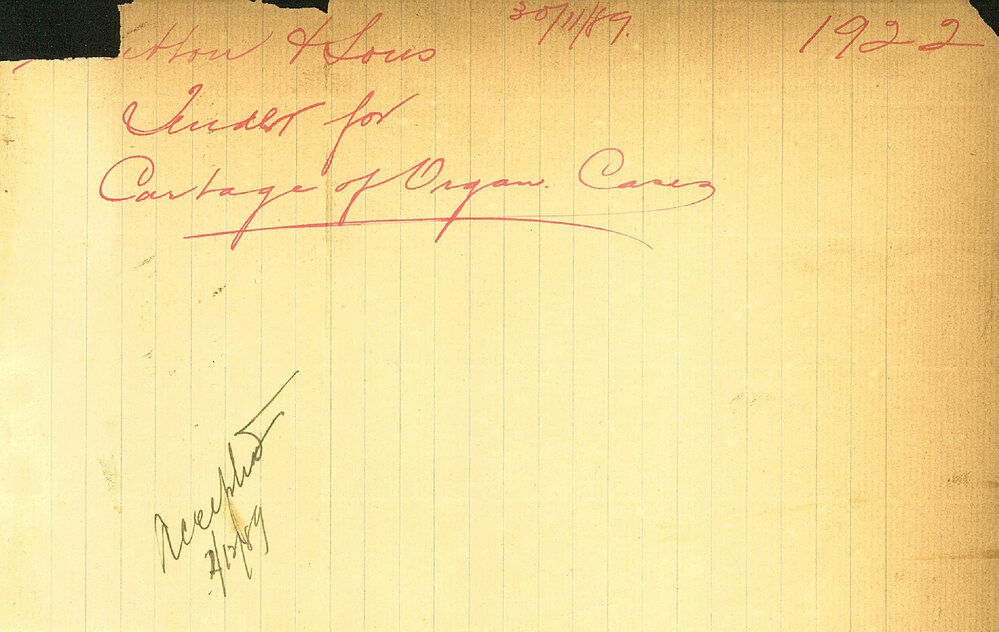 30/11/89. 1922
& Sons
Tender for
Cartage of Organ Cases
Accepted
2/12/89